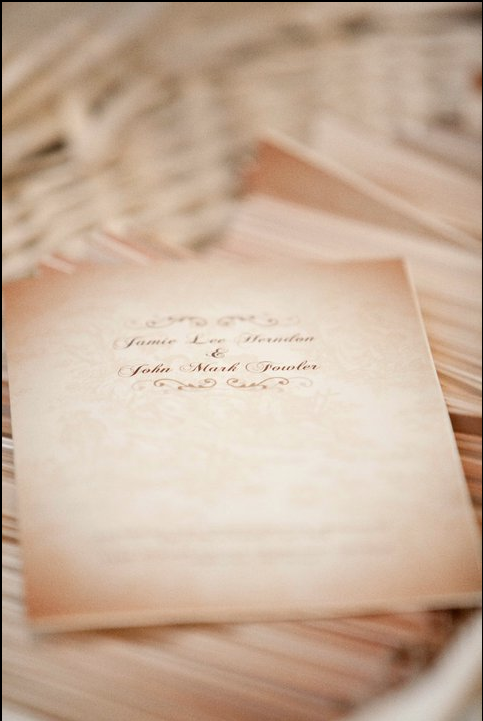 Jamie Lee Herndon
&
John Mark Fowler